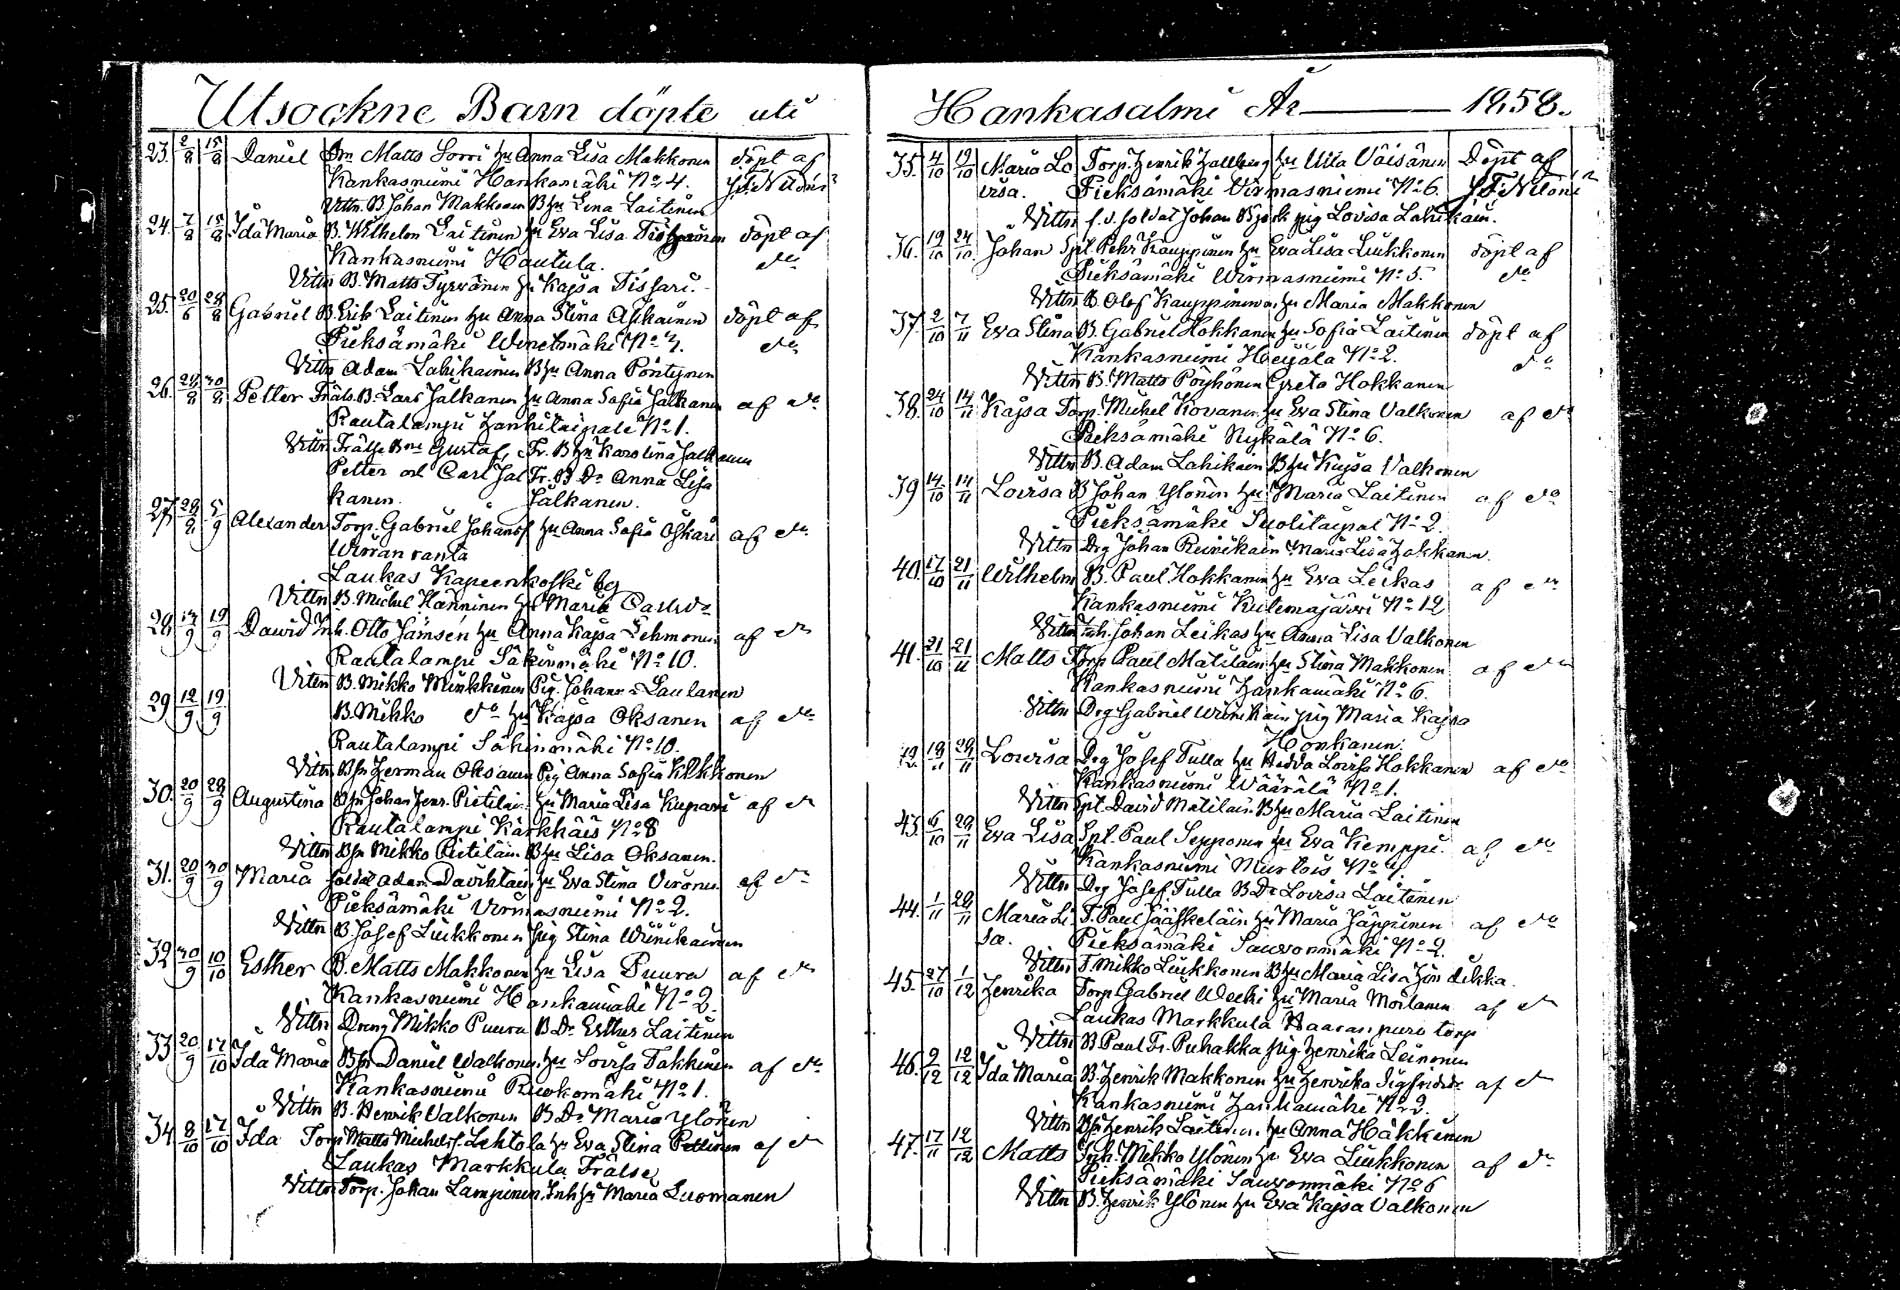 Utsockne Barn döpte uti
23. 2/8 15/8 Daniel Bn Matts Sorri hu Anna Lisa Makkonen döpt af
Kankasniemi Hankamäki No 4. J.F. Niloni
Vittn. B Johan Makkonen B hu Lena Laitinen
24. 7/8 15/8 Ida Maria B. Wilhelm Laitinen hu Eva Lisa döpt af
Kankasniemi Hautula. do
Vittn B. Matts Tyrvänen hu Kajsa Tissari.
25. 20/6 28/8 Gabriel B. Erik Laitinen hu Anna Stina Asikainen döpt af
Pieksämäki Wenetmäki No 7. do
Vittn Adam Lahikainen B hu Anna Pöntynen
26. 28/8 30/8 Petter Fräls. B. Lars Jalkanen hu Anna Sofia Jalkanen af do
Rautalampi Hankitaipale No 1.
Vittn Frälse Bne Gustaf, Fr. B hu Karolina Jalkanen
Petter och Carl Jal Fr. B Dr Anna Lisa
kanen. Jalkanen.
27. 29/8 5/9 Alexander Torp. Gabriel Johansf. hu Anna Sofia Oskari af do
Wirran ranta
Laukas Kapeenkoski bg
Vittn B. Michel Hänninen hu Maria
28 17/9 19/9 David Inh. Otto Jämsén hu Anna Kajsa Lehmonen af do
Rautalampi Säkinmäki No 10.
Vittn B. Mikko Minkkinen Pig. Johanna Lautanen
29 12/9 19/9 B. Mikko do hu Kajsa Oksanen af do
Rautalampi Säkinmäki No 10.
Vittn Bsn Herman Oksanen Pig Anna Sofia Kekkonen
30. 20/9 28/9 Augustina Bsn Johan Henr. Pietiläi. hu Maria Lisa Kupari af do
Rautalampi Kärkkäis No 8
Vittn Bsn Mikko Pietiläin B hu Lisa Oksanen.
31. 20/9 30/9 Maria soldat Adam Davidstain hu Eva Stina Vironen af do
Pieksämäki Virmasniemi No 2.
Vittn B Josef Liukkonen pig Stina Wiinikainen
32 30/9 10/10 Esther B. Matts Makkonen hu Lisa Puura af do
Kankasniemi Hankamäki No 2.
Vittn Dreng Mikko Puura B. Dr Esther Laitinen
33 20/9 17/10 Ida Maria Bsn Daniel Walkonen hu Lovisa Takkinen af do
Kankasniemi Ruokomäki No 1.
Vittn B. Henrik Valkonen B Dr Maria Ylönen
34 8/10 17/10 Ida Torp Matts Michelsf. Lehtola hu Eva Stina Pettinen af do
Laukas Markkula Frälse
Vittn Torp. Johan Lampinen, Inh hu Maria Luomanen
Hankasalmi År 1858.
35. 4/10 19/10 Maria Lo Torp. Henrik Hallberg hu Ulla Väisänen Döpt af
visa. Pieksämäki Virmasniemi No 6. J.F. Niloni
Vittn f.d. soldat Johan Björk pig Lovisa Lahikain.
36. 19/10 24/10 Johan Spt Pehr Kauppinen hu Eva Lisa Liukkonen döpt af
Pieksämäki Wirmasniemi No 5. do
Vittn B. Olof Kauppinen hu Maria Makkonen
37. 2/10 7/11 Eva Stina B. Gabriel Hokkanen hu Sofia Laitinen döpt af
Kankasniemi Heijala No 2. do
Vittn B. Matts Pöyhönen Greta Hokkanen
38. 24/10 14/11 Kajsa Torp. Michel Kovanen hu Eva Stina Valkonen af do
Pieksämäki Nykälä No 6.
Vittn B. Adam Lahikain B hu Kajsa Valkonen
39 14/10 14/11 Lovisa B Johan Ylönen hu Maria Laitinen af do
Pieksämäki Suolitaipal No 2
Vittn Drg Johan Reinikain Maria Lisa Hokkanen.
40. 17/10 21/11 Wilhelm B. Paul Hokkanen hu Eva Leikas af do
Kankasniemi Kutemajärvi No 12
Vittn Inh. Johan Leikas hu Anna Lisa Valkonen
41. 21/10 21/11 Matts Torp. Paul Matilain hu Stina Makkonen af do
Kankasniemi Hankamäki No 6.
Vittn Drg Gabriel Wiinikain pig Maria Kajsa
Honkanen.
18/11 29/11 Lovisa Drg Josef Tulla hu Hedda Lovisa Hokkanen af do
Kankasniemi Wäärälä No 1.
Vittn Spt. David Matilain B hu Maria Laitinen
43. 6/10 29/11 Eva Lisa Spt. Paul Sepponen hu Eva Kemppi af do
Kankasniemi Murtois No 4.
Vittn Drg Josef Tulla B Dr Lovisa Laitinen
44. 1/11 29/11 Maria Li T. Paul Jääskeläin hu Maria Jäppinen af do
sa. Pieksämäki Sauvonmäki No 2.
Vittn T. Mikko Liukkonen B hu Maria Lisa
45. 27/10 1/12 Henrika Torp Gabriel Wecki hu Maria Moilanen af do
Laukas Markkula Haaranpuro torp
Vittn B Paul Fr. Puhakka pig Henrika Leinonen
46. 9/12 12/12 Ida Maria B. Henrik Makkonen hu Henrika Sigfridsdr af do
Kankasniemi Hankamäki No 2.
Vittn Bsn Henrik Laitinen hu Anna Häkkinen
47. 17/11 12/12 Matts Inh. Mikko Ylönen hu Eva Liukkonen af do
Pieksämäki Sauvonmäki No 6
Vittn B. Henrik Ylönen hu Eva Kajsa Valkonen